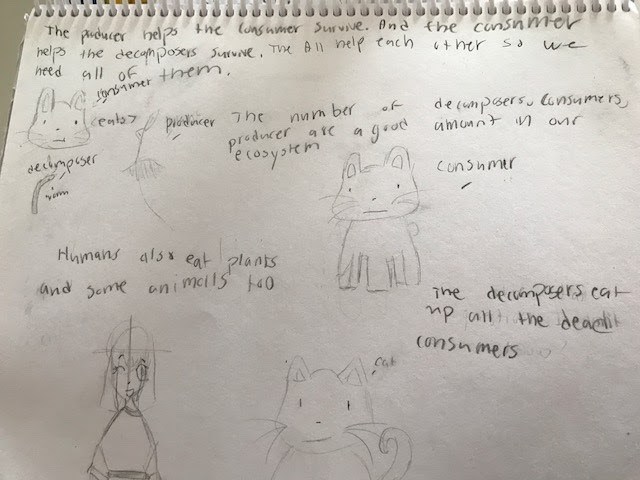 The producer helps the consumer survive. And the consumer
helps the decomposers survive. The All help each other so we
need all of them.
consumer
eats
producer
decomposer
The number of decomposers, consumers,
producer are a good amount in our
ecosystem
consumer
Humans also eat plants
and some animalls too
The decomposers eat
up all the dead
consumers
cat